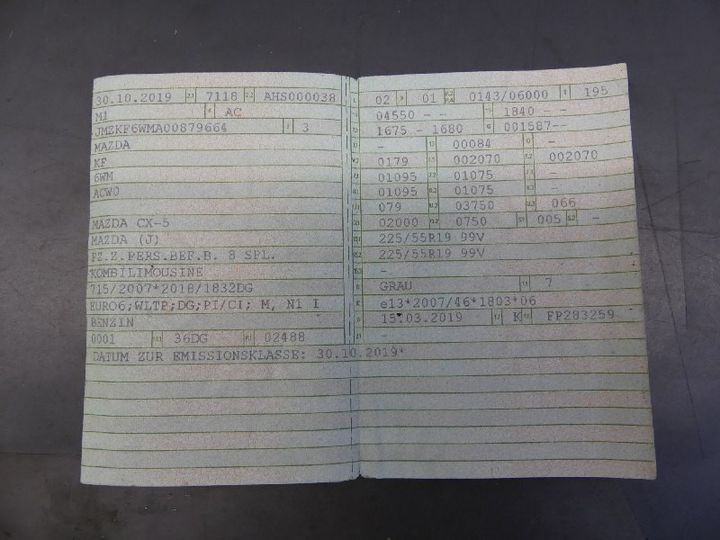 30.10.2019 7118 AHS000038
M1 AC
JMZKF6WMA00879664 3
MAZDA
KF
6WM
ACWO
MAZDA CX-5
MAZDA (J)
FZ.Z.PERS.BEF.B. 8 SPL.
KOMBILIMOUSINE
715/2007*2018/1832DG
EURO6;WLTP;DG;PI/CI; M, N1 I
BENZIN
0001 36DG 02488
DATUM ZUR EMISSIONSKLASSE: 30.10.2019*
02 01 0143/06000 195
04550 - - 1840 - -
1675 - 1680 001587--
- 00084 -
0179 002070 002070
01095 01075 -
01095 01075 -
079 03750 066
02000 0750 005 -
225/55R19 99V
225/55R19 99V
-
GRAU 7
e13*2007/46*1803*06
15.03.2019 K FP283259
-